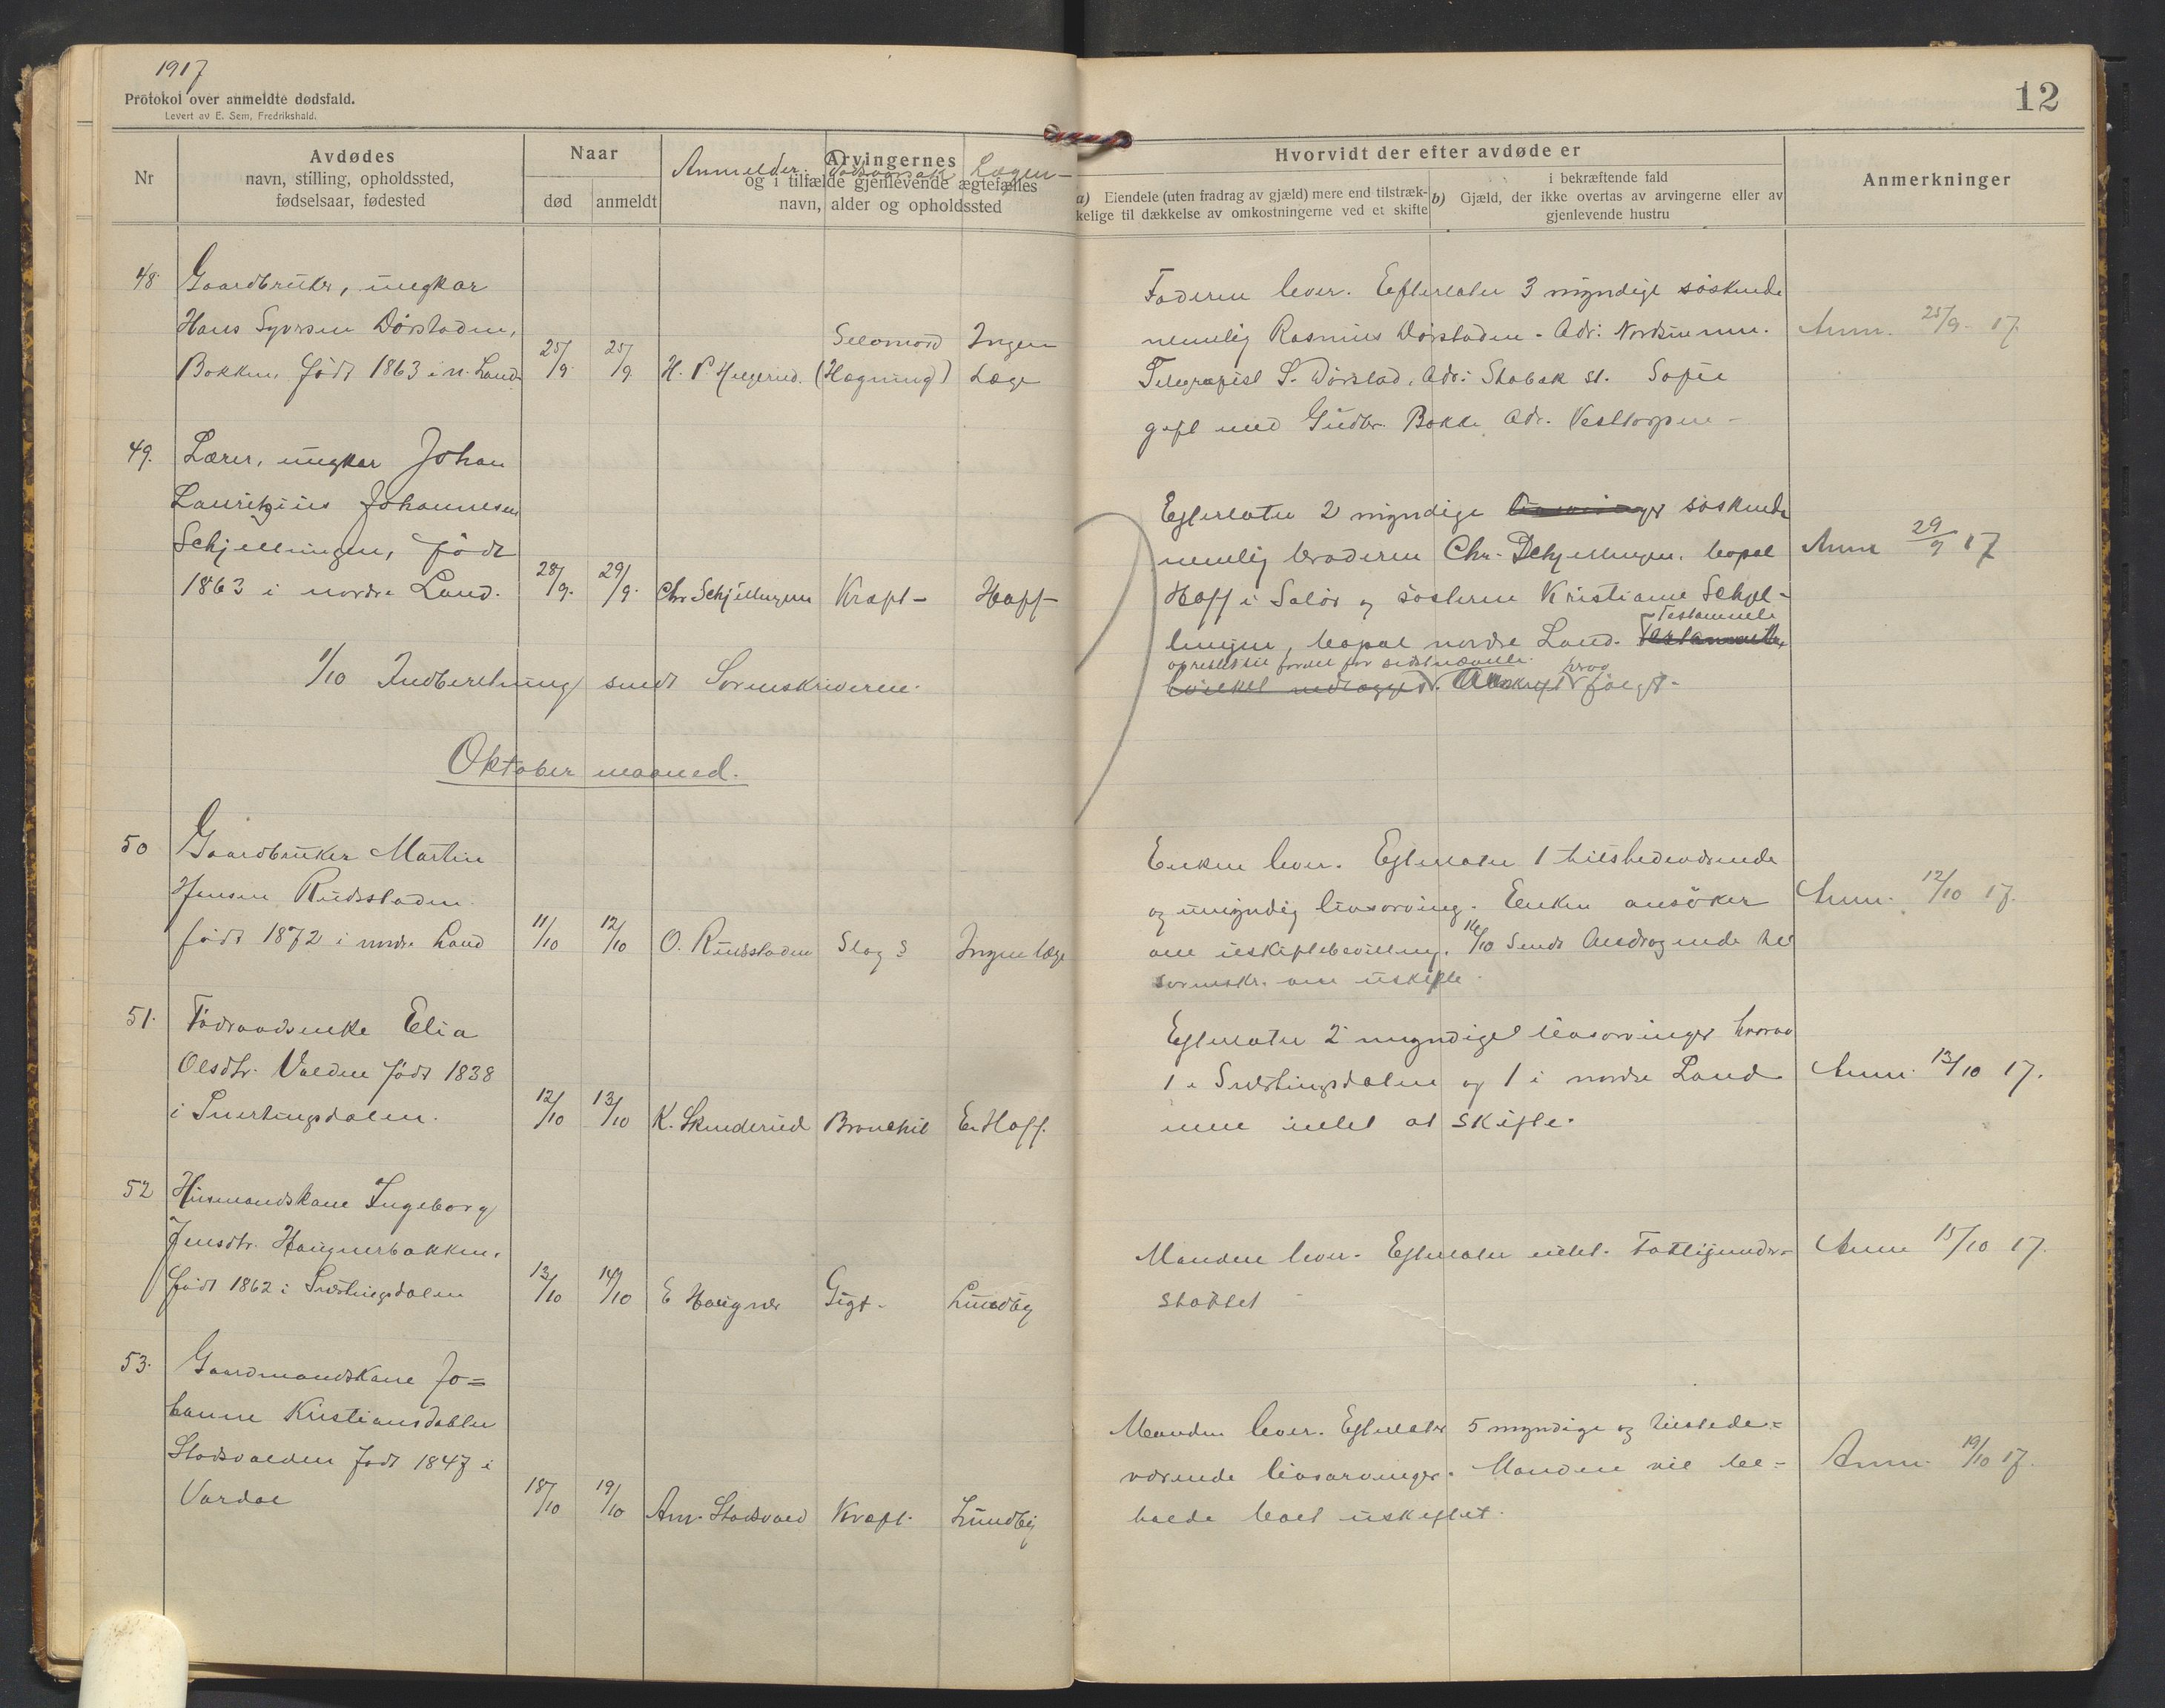 1917
Protokol over anmeldte dødsfald.
Levert av E. Sem, Fredrikshald.
12
Nr
Avdødes
navn, stilling, opholdssted,
fødselsaar, fødested
Naar
død
anmeldt
Anmelder. Dødsaarsak Lægen
Arvingernes
og i tilfælde gjenlevende ægtefælles
navn, alder og opholdssted
Hvorvidt der efter avdøde er
a) Eiendele (uten fradrag av gjæld) mere end tilstræk-
kelige til dækkelse av omkostningerne ved et skifte
i bekræftende fald
b) Gjæld, der ikke overtas av arvingerne eller av
gjenlevende hustru
Anmerkninger
48 Gaardbruker, ungkar
Hans Syversen Dørstaden,
Bakken, født 1863 i n. Land
25/9 25/9 H. P. (Hægning) Ingen Læge
Faderen lever. Efterlater 3 myndige søskende
nemlig Rasmus Dørstaden - Adr: Nordsinnen.
Telegrafist S. Dørstad, Adr: Stabæk st. Sofie
gift med Gudbr. Bakke, Adr. Vesttorpen -
Anm. 25/9 17.
49. Lærer, ungkar Johan
Lauritzius Johannesen
Schjellingen, født
1863 i nordre Land.
28/9. 29/9. Chr Schjellingen Kræft - Hoff
Efterlater 2 myndige søskende
nemlig broderen Chr. Schjellingen, bopæl
Hoff i Solør og søsteren Kristiane Schjel-
lingen, bopæl nordre Land. Testamente
oprettet til fordel for sidstnævnte.
Avskrift følgt.
Anm 29/9 17
1/10 Indberetning sendt Sorenskriveren.
Oktober maaned.
50 Gaardbruker Martin
Jensen Rudsstaden
født 1872 i nordre Land
11/10 12/10 O. Rudsstaden Slag ? Ingen læge
Enken lever. Efterlater 1 tilstedeværende
og umyndig livsarving. Enken ansøker
om uskiftebevilling. 16/10 Sendt Andragende til
sorenskr. om uskifte.
Anm. 12/10 17.
51. Føderaadsenke Elia
Olsdtr. Valden født 1838
i Snertingsdalen.
12/10 13/10 K. Skinderud Bronchit E. Hoff.
Efterlater 2 myndige livsarvinger hvorav
1 i Snertingsdalen og 1 i nordre Land
men intet at skifte.
Anm. 13/10 17.
52 Husmandskone Ingeborg
Jensdtr. Haugnerbakken.
født 1862 i Snertingsdalen
13/10 14/10 E Haugner Gigt - Lundby
Manden lever. Efterlater intet. Fattigunder-
støttet
Anm 15/10 17.
53. Gaardmandskone Jo=
hanne Kristiansdatter
Stadsvolden født 1847 i
Vardal
18/10 19/10 Stadsvold Kræft. Lundby
Manden lever. Efterlater 5 myndige og tilstede=
værende livsarvinger. Manden vil be=
holde boet uskiftet.
Anm. 19/10 17.